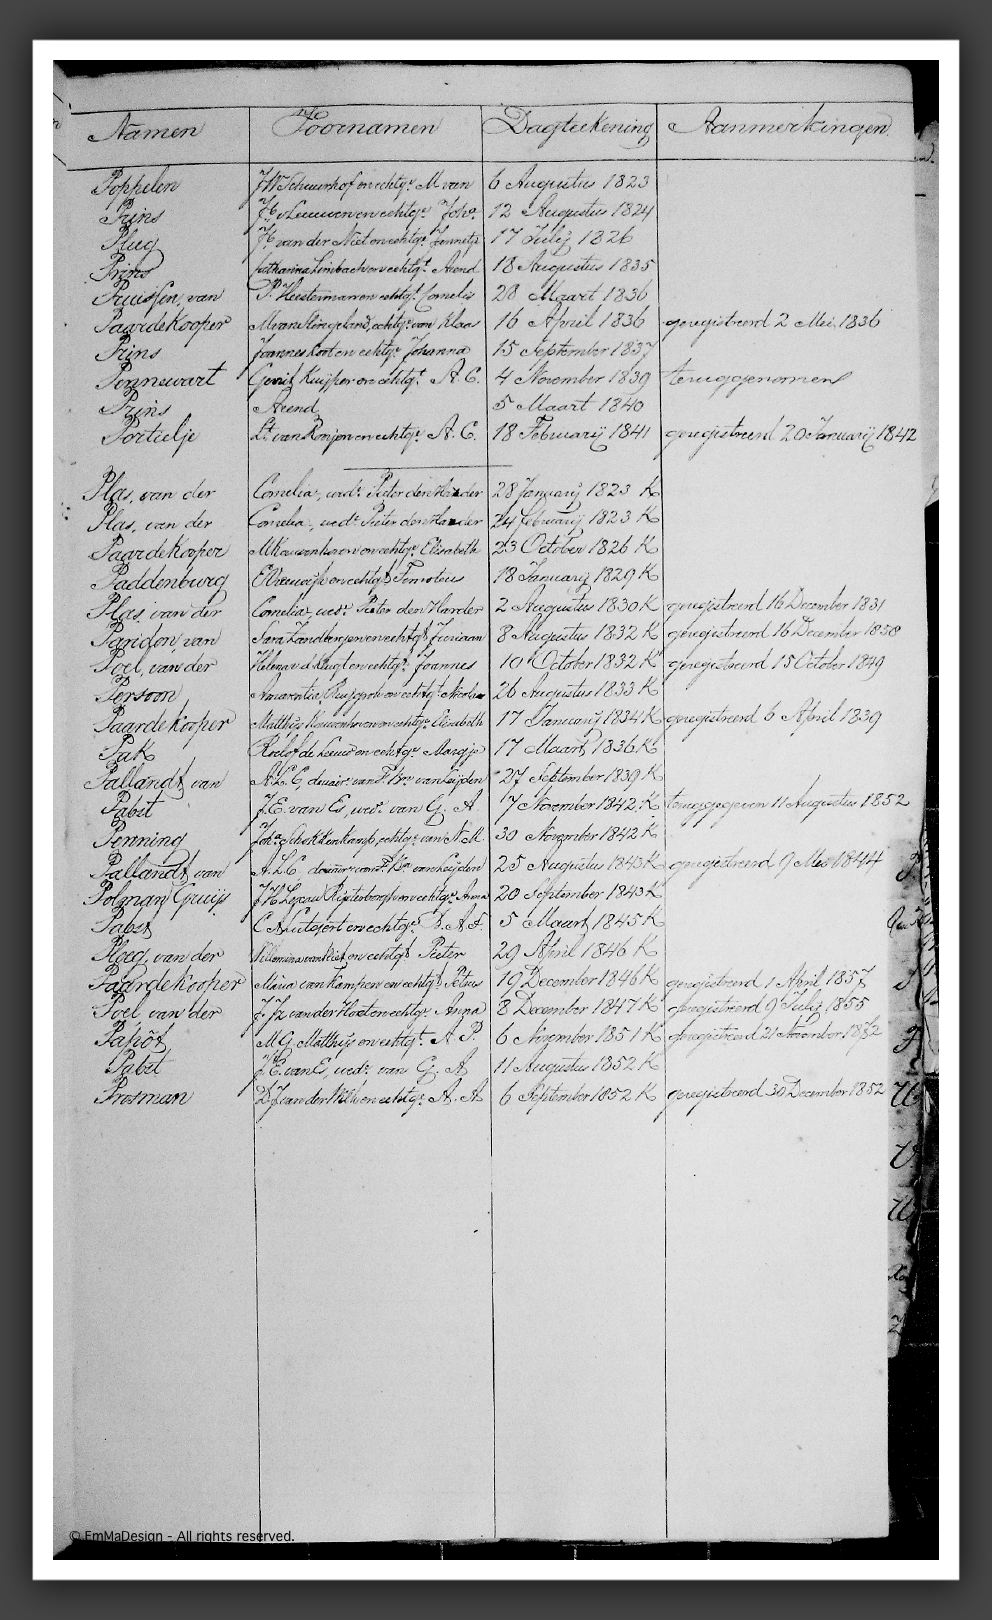 Namen Voornamen Dagteekening Aanmerkingen
Poppelen J W Schuurhof en echtge. M van 6 Augustus 1823
Prins J C v Leeuwen en echtge. Joha. 12 Augustus 1824
Plug J. van der Niet en echtge. Jannetje 17 Julij 1826
Prins Catharina Limbach en echtgt. Arend 18 Augustus 1835
Pruissen, van P. Heestermans en echtgt. Cornelis 28 Maart 1836
Paardekooper M van Slingeland, echtge. van Klaas 16 April 1836 geregistreerd 2 Mei 1836
Prins Joannes Koot en echtge. Johanna 15 September 1837
Pennewart Gerrit Kuijper en echtgt. A. C. 4 November 1839 teruggenomen
Prins Arend 5 Maart 1840
Portielje Lt. van Rooijen en echtge. A. C. 18 Februarij 1841 geregistreerd 20 Januarij 1842
Plas, van der Cornelia, wede. Pieter den Harder 28 Januarij 1823 K
Plas, van der Cornelia, wede. Pieter den Harder 24 februarij 1823 K
Paardekooper M Kouwenhoven en echtge. Elisabeth 23 October 1826 K
Paddenburg E Vreeswijk en echtgt. Timoteus 18 Januarij 1829 K
Plas, van der Cornelia, wede. Pieter den Harder 2 Augustus 1830 K geregistreerd 16 December 1831
Paridon, van Sara Zandbergen en echtgt. Juriaan 8 Augustus 1832 K geregistreerd 16 December 1838
Poel, van der Helena v.d. en echtge. Joannes 10 October 1832 K geregistreerd 15 October 1849
Persoon en echtgt. Nicolaas 26 Augustus 1833 K
Paardekooper Matthijs Kouwenhoven en echtge. Elisabeth 17 Januarij 1834 K geregistreerd 6 April 1839
Pak Roelof de Leeuw en echtge. Margje 17 Maart 1836 K
Pallandt van A. L. C, douair. van F. Bn. van Leijden 27 September 1839 K
Pabst J. E. van Es, wede. van G. A. 7 November 1842 K teruggegeven 11 Augustus 1852
Penning Joha. Schokkenkamp, echtge. van N. M. 30 November 1842 K
Pallandt, van A. L. C, douair. van F. Bn. van Leijden 25 Augustus 1843 K geregistreerd 9 Mei 1844
Polman Gruijs J H en echtge. Anna 20 September 1843 K
Pabst C A Lutgert en echtge. D. A. F. 5 Maart 1845 K
Ploeg, van der Willemina van Vliet en echtgt. Pieter 29 April 1846 K
Paardekooper Maria van Kampen en echtgt. Petrus 19 December 1846 K geregistreerd 1 April 1857
Poel van der J. Jz. van der Horst en echtge. Anna 8 December 1847 K geregistreerd 9 Julij 1855
Pahôt M G Matthijs en echtgt. A P. 6 November 1851 K geregistreerd 21 November 1852
Pabst J. E. van Es, wede. van G. A 11 Augustus 1852 K
Protman D J van der Wilk en echtge. A. A 6 September 1852 K geregistreerd 30 December 1852
© EmMaDesign - All rights reserved.